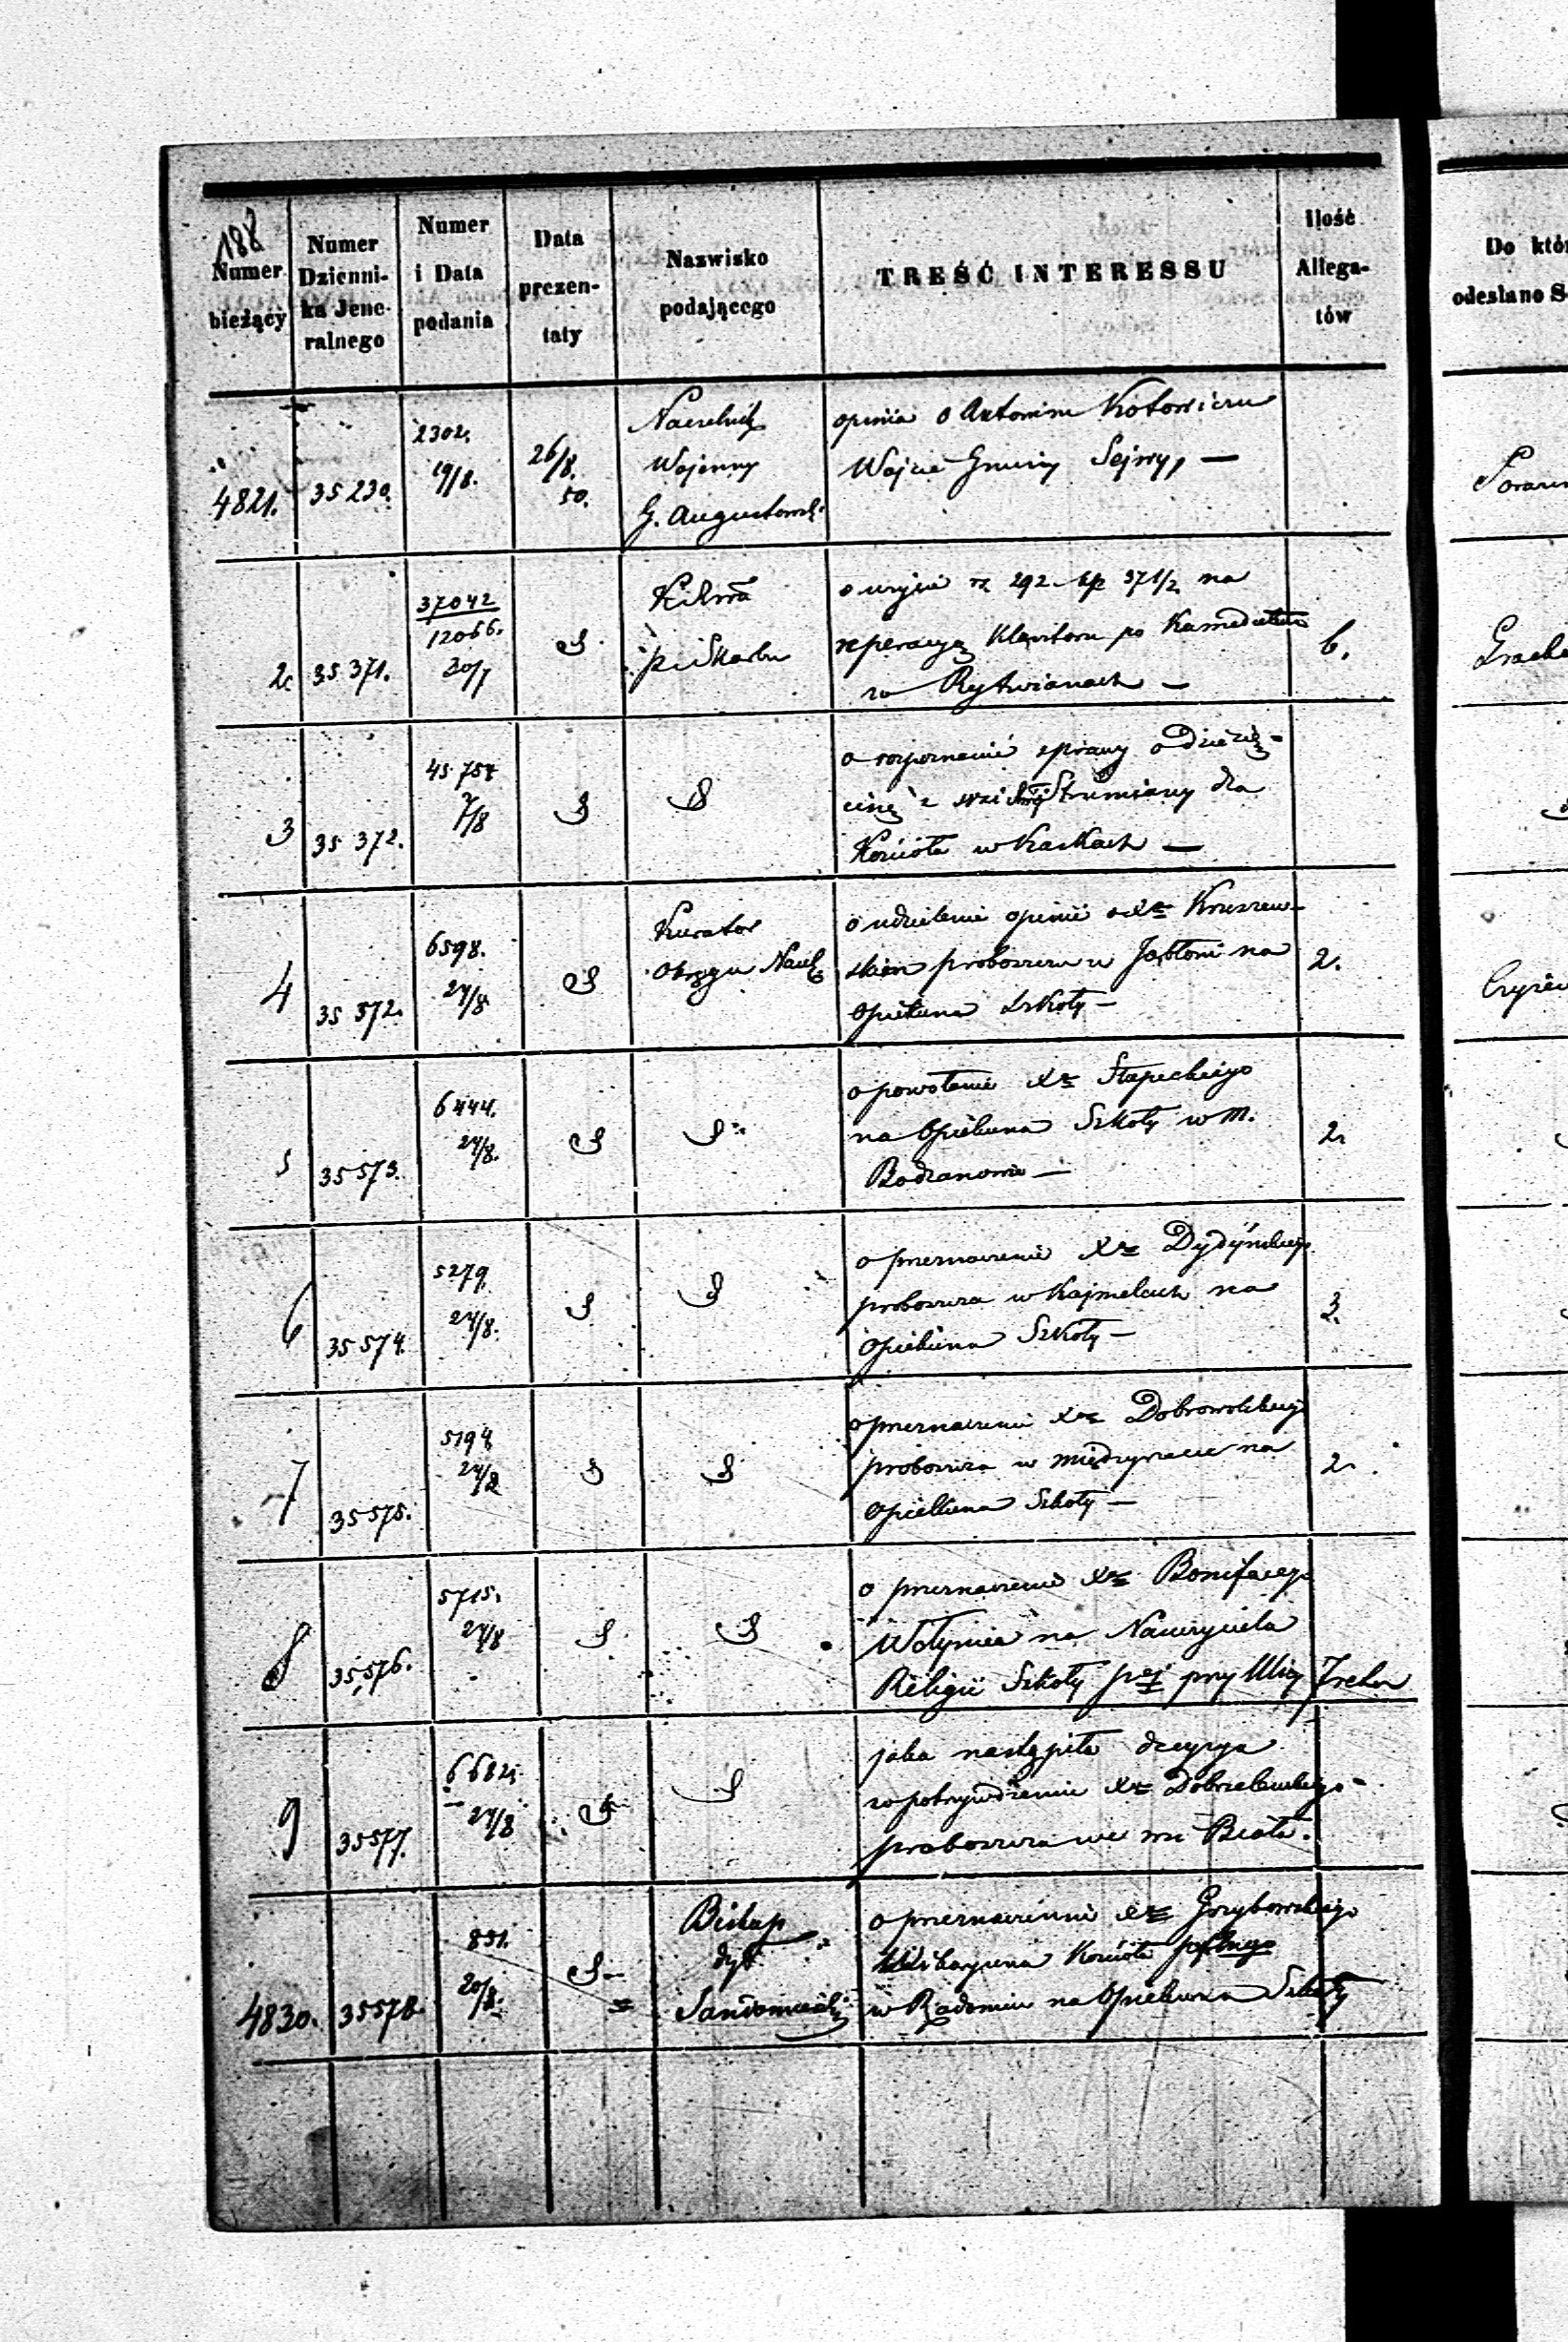 188
Numer bieżący
Numer Dzienni-ka Jene-ralnego
Numer i Data podania
Data prezen-taty
Nazwisko podającego
TREŚĆ INTERESSU
Ilość Allega-tów
Do któ
odesłano S
4821. 35230. 2302. 19/8. 26/8. 50.
Naczelnik
Wojenny
G. Augustowsk.
opinia o Antonim Kotowiczu
Wójcie Gminy Sejwy, —
2. 35371. 37042 12066. 30/7
p i Skarbu
o użycie rs 292 kp 37 1/2 na
reperacyą Klasztoru po Kamedułach
w Rytwianach —
6.
3 35372. 45757 7/8
o rozpoznanie sprawy o dziesię-
cinę z wsi Strumiany dla
Kościoła w Kaskach —
4 35572. 6598. 24/8
Kurator
Okręgu Nauk
o udzielenie opinii o Xze Kruszew-
skim proboszczu w Jabłoni na
Opiekuna Szkoły —
2.
5 35573. 6444. 24/8.
o powołanie Xa Słupeckiego
na Opiekuna Szkoły w M.
Bodzanowie —
2.
6 35574. 5279. 24/8.
o przeznaczenie Xa Dydyńskiego
proboszcza w Kajmelach na
Opiekuna Szkoły —
3.
7 35575. 5194 24/8
o przeznaczenie Xa Dobrowolskiego
proboszcza w Międzyrzecu na
Opiekuna Szkoły —
2.
8 35576. 5715. 24/8
o przeznaczenie Xa Bonifacego
Wołyńca na Nauczyciela
Religii Szkoły przy Ulicy Freta
9 35577. 6682. 24/8
jaka nastąpiła decyzya
w potwierdzeniu Xa
proboszcza we wsi Biała.
4830. 35578. 851. 20/8.
Biskup
dyec.
Sandomierski
o przeznaczenie Xa Grzybowskiego
Wikaryusza Kościoła
w Radomiu na Opiekuna Szkoły